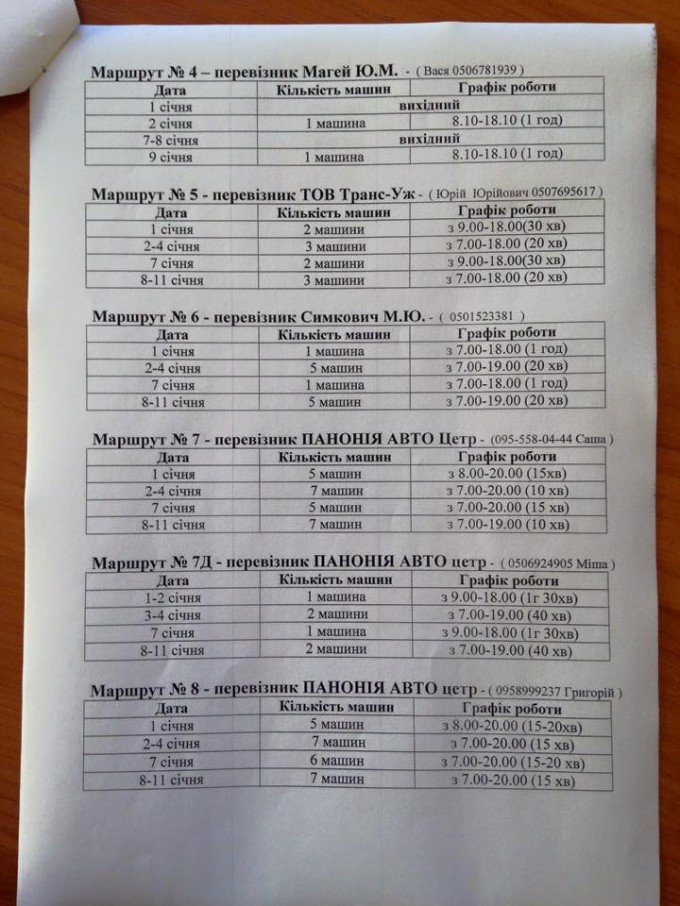 Маршрут № 4 – перевізник Магей Ю.М. - ( Вася 0506781939 )
Дата Кількість машин Графік роботи
1 січня вихідний
2 січня 1 машина 8.10-18.10 (1 год)
7-8 січня вихідний
9 січня 1 машина 8.10-18.10 (1 год)
Маршрут № 5 - перевізник ТОВ Транс-Уж - ( Юрій Юрійович 0507695617 )
Дата Кількість машин Графік роботи
1 січня 2 машини з 9.00-18.00(30 хв)
2-4 січня 3 машини з 7.00-18.00 (20 хв)
7 січня 2 машини з 9.00-18.00(30 хв)
8-11 січня 3 машини з 7.00-18.00 (20 хв)
Маршрут № 6 - перевізник Симкович М.Ю. - ( 0501523381 )
Дата Кількість машин Графік роботи
1 січня 1 машина з 7.00-18.00 (1 год)
2-4 січня 5 машин з 7.00-19.00 (20 хв)
7 січня 1 машина з 7.00-18.00 (1 год)
8-11 січня 5 машин з 7.00-19.00 (20 хв)
Маршрут № 7 - перевізник ПАНОНІЯ АВТО Цетр - (095-558-04-44 Саша )
Дата Кількість машин Графік роботи
1 січня 5 машин з 8.00-20.00 (15хв)
2-4 січня 7 машин з 7.00-20.00 (10 хв)
7 січня 5 машин з 7.00-20.00 (15 хв)
8-11 січня 7 машин з 7.00-19.00 (10 хв)
Маршрут № 7Д - перевізник ПАНОНІЯ АВТО цетр - ( 0506924905 Міша )
Дата Кількість машин Графік роботи
1-2 січня 1 машина з 9.00-18.00 (1г 30хв)
3-4 січня 2 машини з 7.00-19.00 (40 хв)
7 січня 1 машина з 9.00-18.00 (1г 30хв)
8-11 січня 2 машини з 7.00-19.00 (40 хв)
Маршрут № 8 - перевізник ПАНОНІЯ АВТО цетр - ( 0958999237 Григорій )
Дата Кількість машин Графік роботи
1 січня 5 машин з 8.00-20.00 (15-20хв)
2-4 січня 7 машин з 7.00-20.00 (15 хв)
7 січня 6 машин з 7.00-20.00 (15-20 хв)
8-11 січня 7 машин з 7.00-20.00 (15 хв)